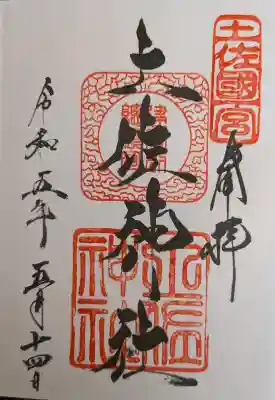 土佐國一宮
奉拝
土佐神社
土佐神社
令和五年五月十四日